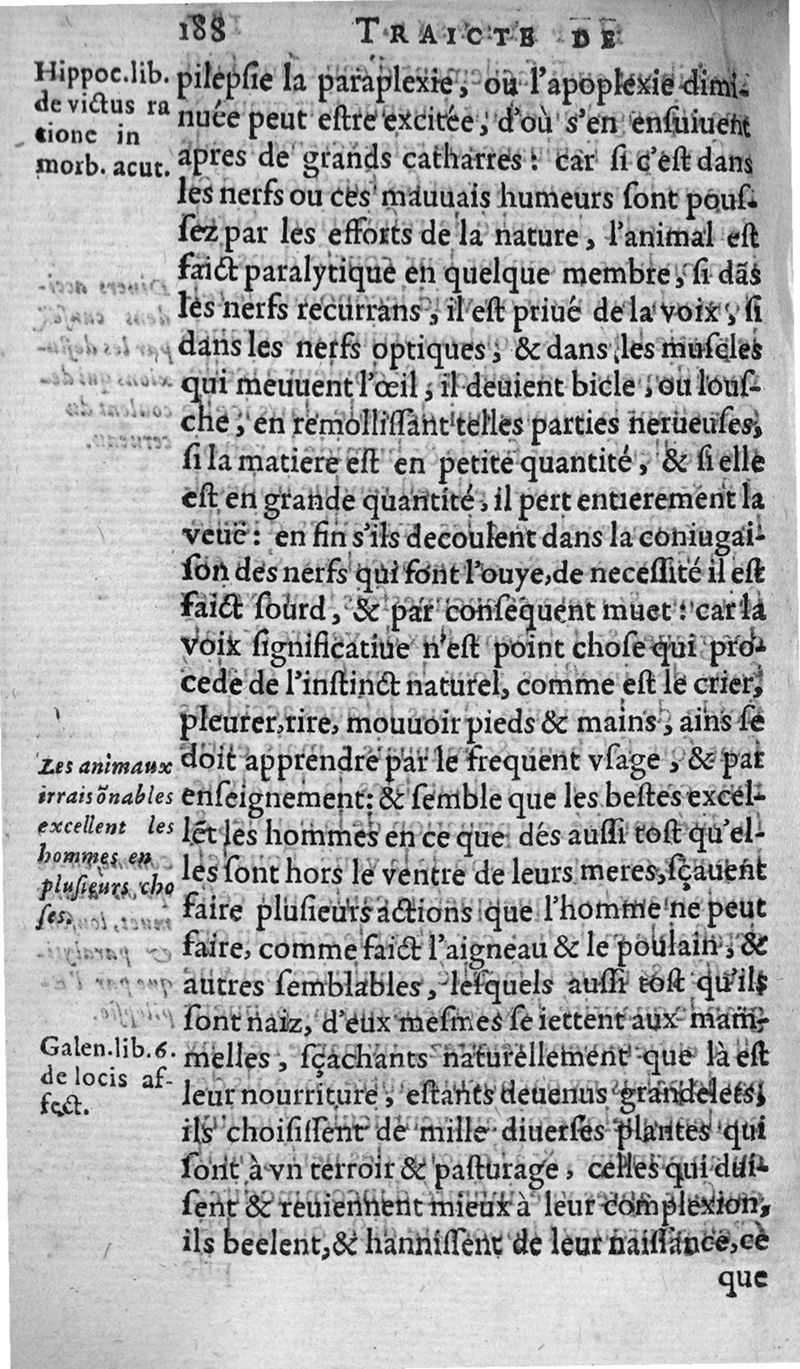 188 TRAICTE DE
Hippoc.lib.
de victus ra
tione in
morb. acut.
pilepſie la paraplexie, ou l'apoplexie dimi-
nuée peut eſtre excitée, d'où s'en enſuiuent
apres de grands catharres : car ſi c'eſt dans
les nerfs ou ces mauuais humeurs ſont pouſ-
ſez par les efforts de la nature, l'animal eſt
faict paralytique en quelque membre, ſi dãs
les nerfs recurrans, il eſt priué de la voix, ſi
dans les nerfs optiques, & dans les muſcles
qui meuuent l'œil, il deuient bicle, ou louſ-
che, en remolliſſant telles parties nerueuſes,
ſi la matiere eſt en petite quantité, & ſi elle
eſt en grande quantité, il pert entierement la
veuë : en fin s'ils decoulent dans la coniugai-
ſon des nerfs qui font l'ouye, de neceſſité il eſt
faict ſourd, & par conſequent muet : car la
voix ſignificatiue n'eſt point choſe qui pro-
cede de l'inſtinct naturel, comme eſt le crier,
pleurer, rire, mouuoir pieds & mains, ains ſe
doit apprendre par le frequent vſage, & par
enſeignement : & ſemble que les beſtes excel-
lẽt les hommes en ce que dés auſſi toſt qu'el-
les ſont hors le ventre de leurs meres, ſçauent
faire pluſieurs actions que l'homme ne peut
faire, comme faict l'aigneau & le poulain, &
autres ſemblables, leſquels auſſi toſt qu'ils
ſont naiz, d'eux meſmes ſe iettent aux mam-
melles, ſçachants naturellement que là eſt
leur nourriture, eſtants deuenus grandelets,
ils choiſiſſent de mille diuerſes plantes qui
ſont à vn terroir & paſturage, celles qui dui-
ſent & reuiennent mieux à leur complexion,
ils beelent, & hanniſſent de leur naiſſance, ce
que
Les animaux
irraisõnables
excellent les
hommes en
pluſieurs cho
ſes.
Galen.lib.6.
de locis af-
fect.